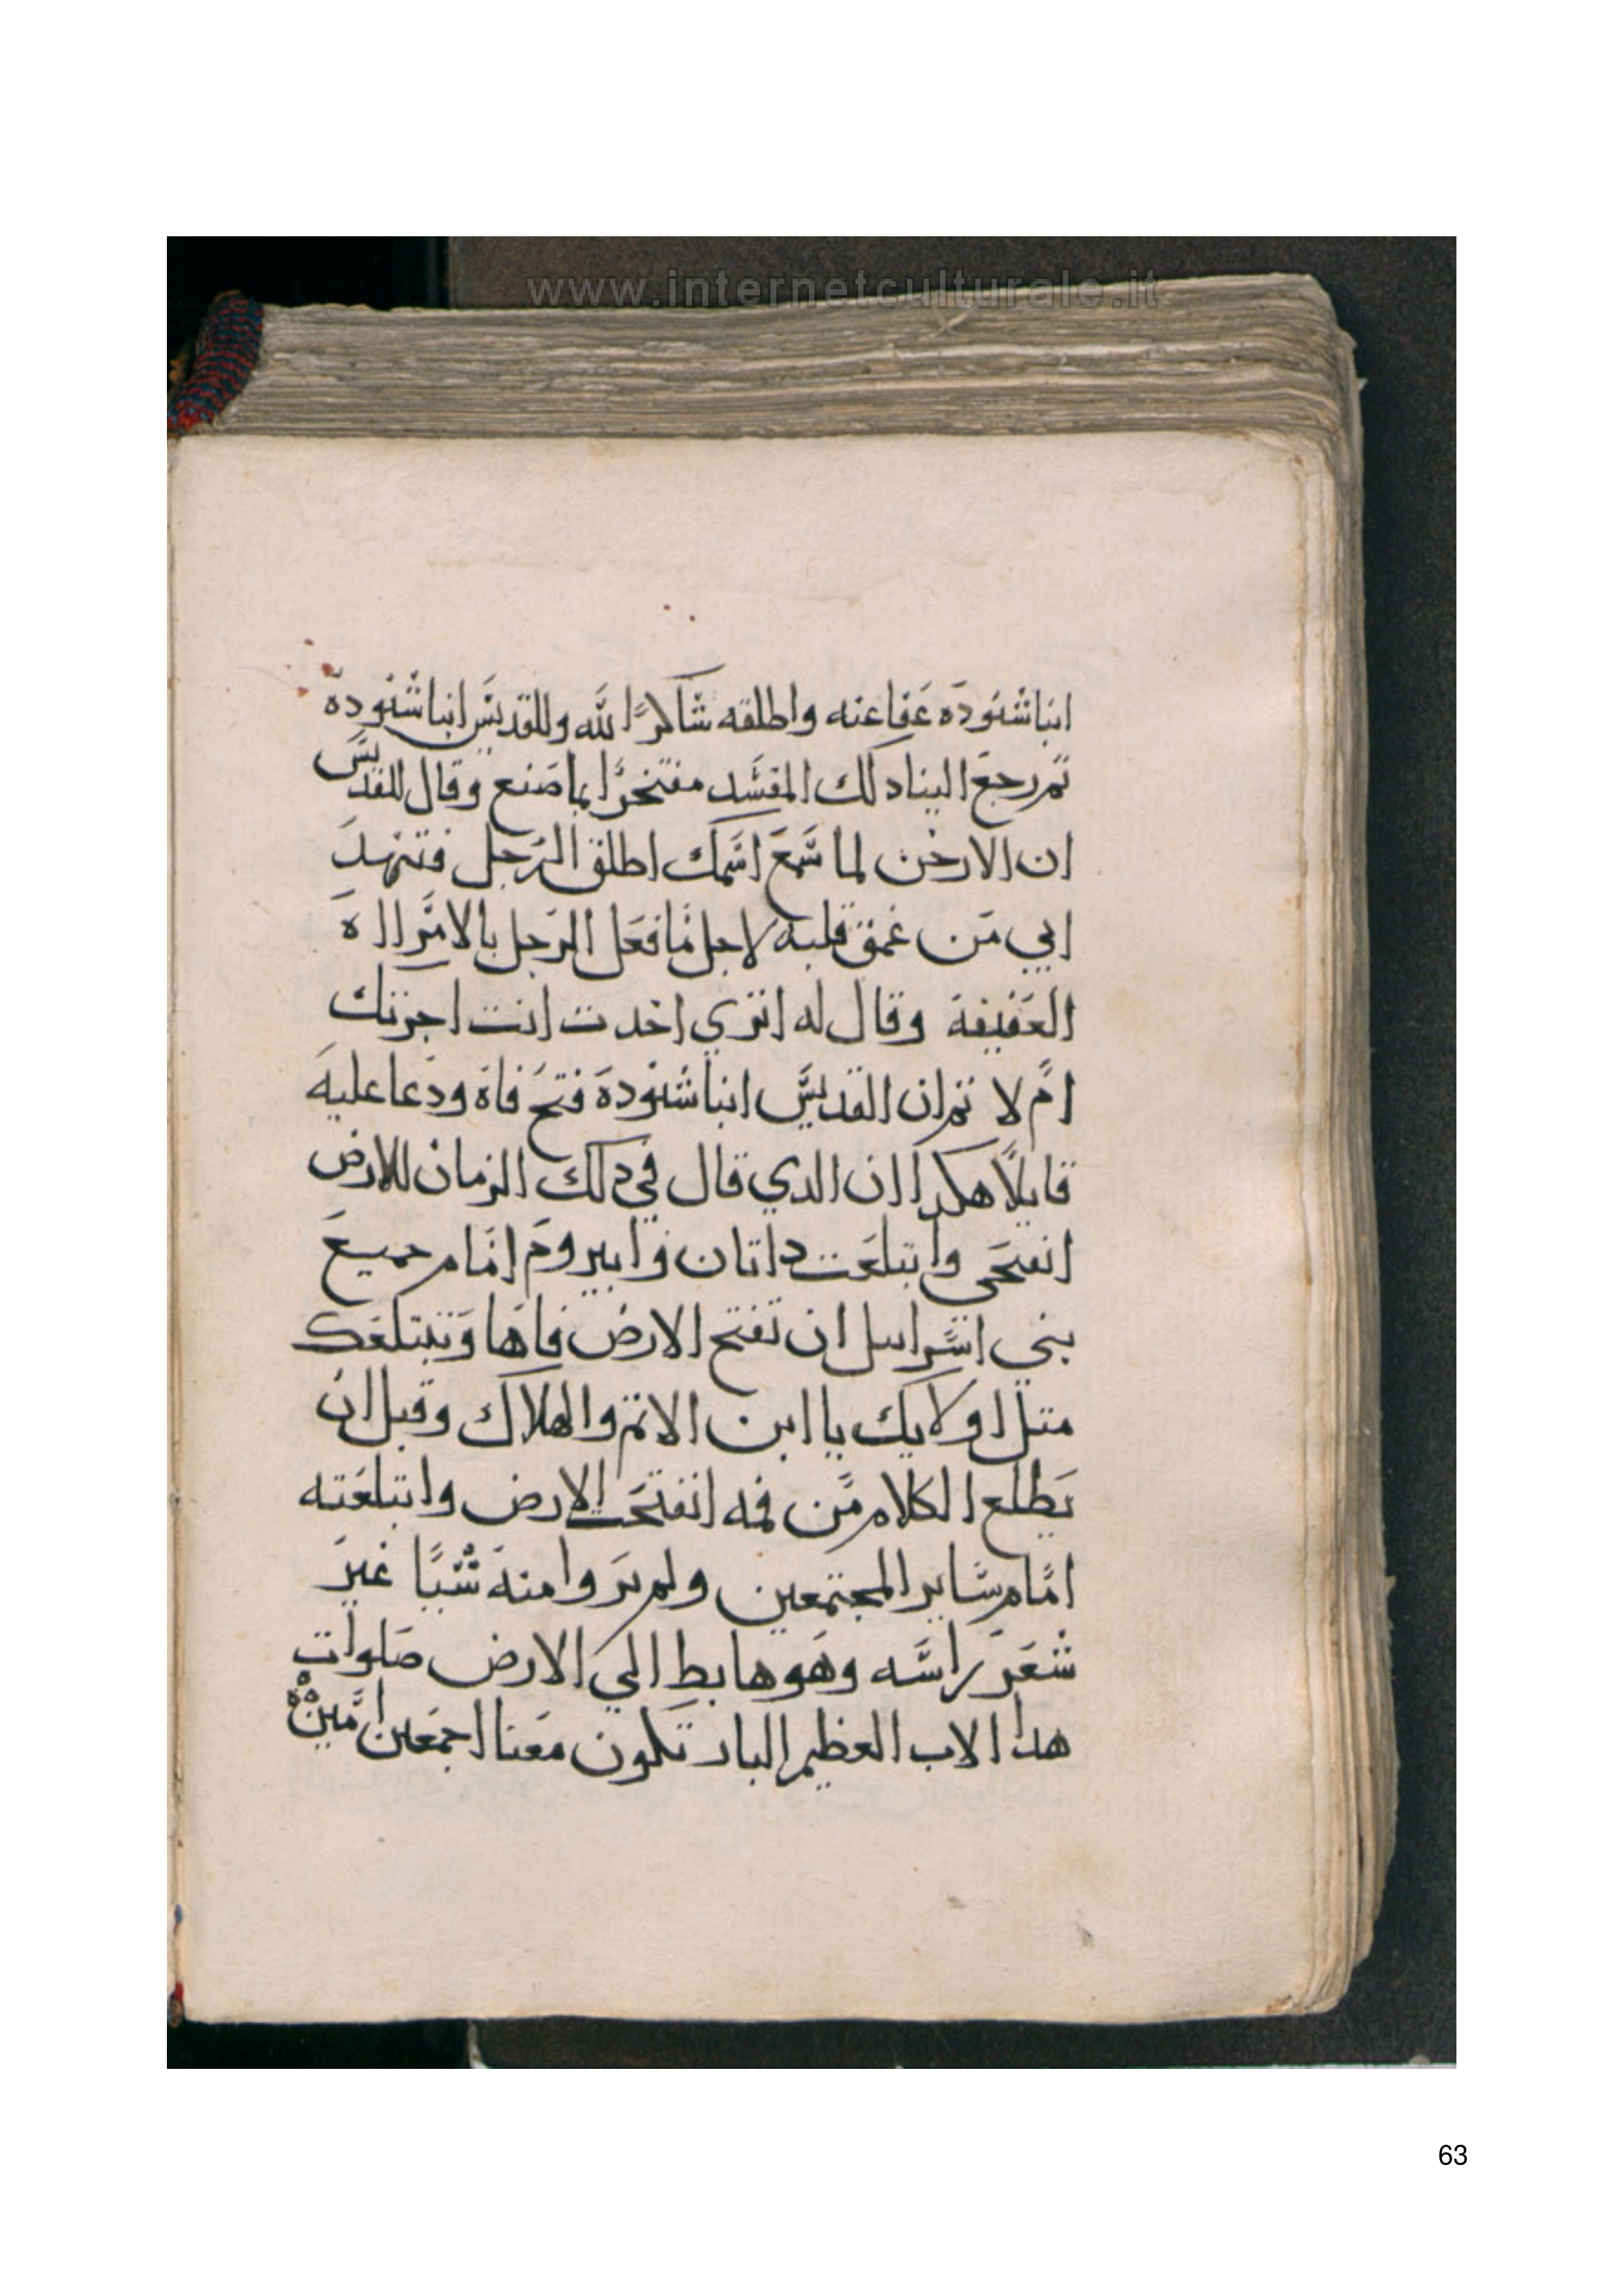 www.internetculturale.it
انبا شنوده عفا عنه واطلقه شاكرًا لله وللقديس انبا شنوده
تم رجع الينا دلك المفسد مفتخرًا بما صنع وقال للقديس
ان الارخن لما سمع اسمك اطلق الرجل فتنهد
ابي من عمق قلبه لاجل ما فعل الرجل بالامراه
العفيفة وقال له اتري اخدت انت اجرتك
ام لا تم ان القديس انبا شنودة فتح فاه ودعا عليه
قايلًا هكدا ان الدي قال في دلك الزمان للارض
انفتحى وابتلعت داتان وابيروم امام جميع
بني اسراييل ان تفتح الارض فاها وتبتلعك
متل اولايك يا ابن الاتم والهلاك وقبل ان
يطلع الكلام من فمه انفتحت الارض وابتلعته
امام ساير المجتمعين ولم يروا منه شيًا غير
شعر راسه وهو هابط الي الارض صلوات
هدا الاب العظيم البار تكون معنا اجمعين امين
63